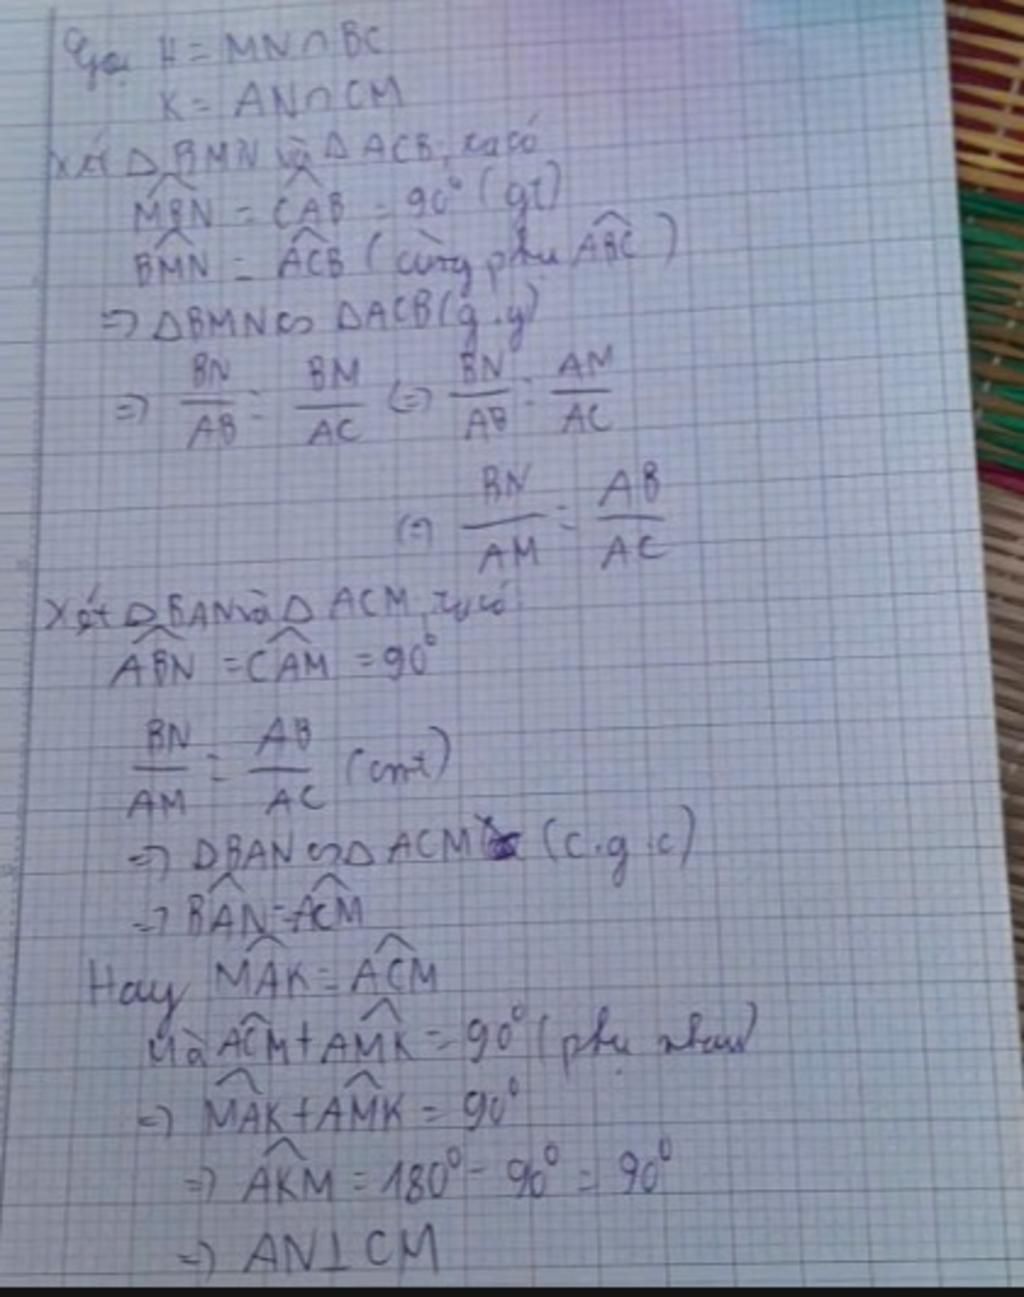 Gọi H = MN ∩ BC
K = AN ∩ CM
Xét Δ BMN và Δ ACB, ta có
\widehat{MBN} = \widehat{CAB} = 90° (gt)
\widehat{BMN} = \widehat{ACB} (cùng phụ \widehat{ABC})
=> ΔBMN ∽ ΔACB (g.g)
=> \frac{BN}{AB} = \frac{BM}{AC} <=> \frac{BN}{AB} = \frac{AM}{AC}
<=> \frac{BN}{AM} = \frac{AB}{AC}
Xét Δ BAN và Δ ACM, ta có
\widehat{ABN} = \widehat{CAM} = 90°
\frac{BN}{AM} = \frac{AB}{AC} (cmt)
=> ΔBAN ∽ Δ ACM (c.g.c)
=> \widehat{BAN} = \widehat{ACM}
Hay \widehat{MAK} = \widehat{ACM}
Mà \widehat{ACM} + \widehat{AMK} = 90° (phụ nhau)
=> \widehat{MAK} + \widehat{AMK} = 90°
=> \widehat{AKM} = 180° - 90° = 90°
=> AN ⊥ CM